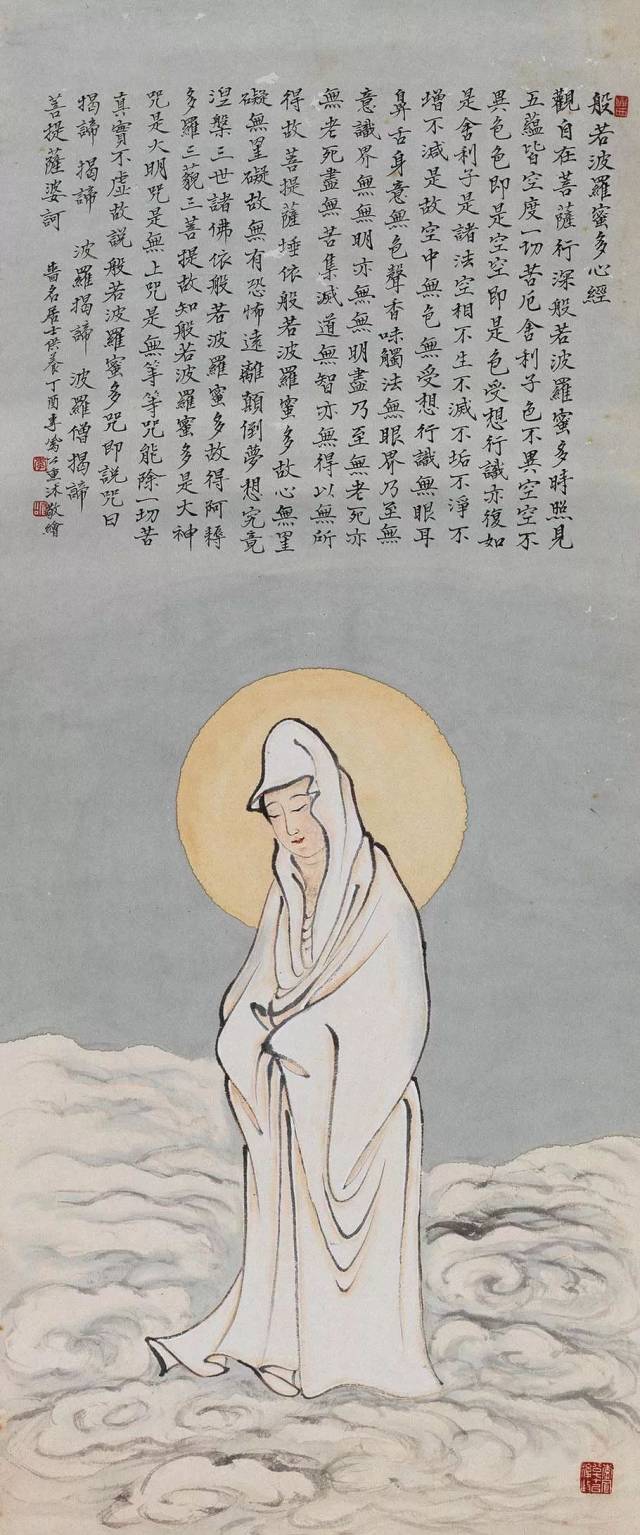 般若波羅蜜多心經
觀自在菩薩行深般若波羅蜜多時照見
五蘊皆空度一切苦厄舍利子色不異空空不
異色色即是空空即是色受想行識亦復如
是舍利子是諸法空相不生不滅不垢不淨不
增不減是故空中無色無受想行識無眼耳
鼻舌身意無色聲香味觸法無眼界乃至無
意識界無無明亦無無明盡乃至無老死亦
無老死盡無苦集滅道無智亦無得以無所
得故菩提薩埵依般若波羅蜜多故心無罣
礙無罣礙故無有恐怖遠離顛倒夢想究竟
涅槃三世諸佛依般若波羅蜜多故得阿耨
多羅三藐三菩提故知般若波羅蜜多是大神
咒是大明咒是無上咒是無等等咒能除一切苦
真實不虛故說般若波羅蜜多咒即說咒曰
揭諦 揭諦 波羅揭諦 波羅僧揭諦
菩提薩婆訶
嗇名居士供養丁酉 沐敬繪